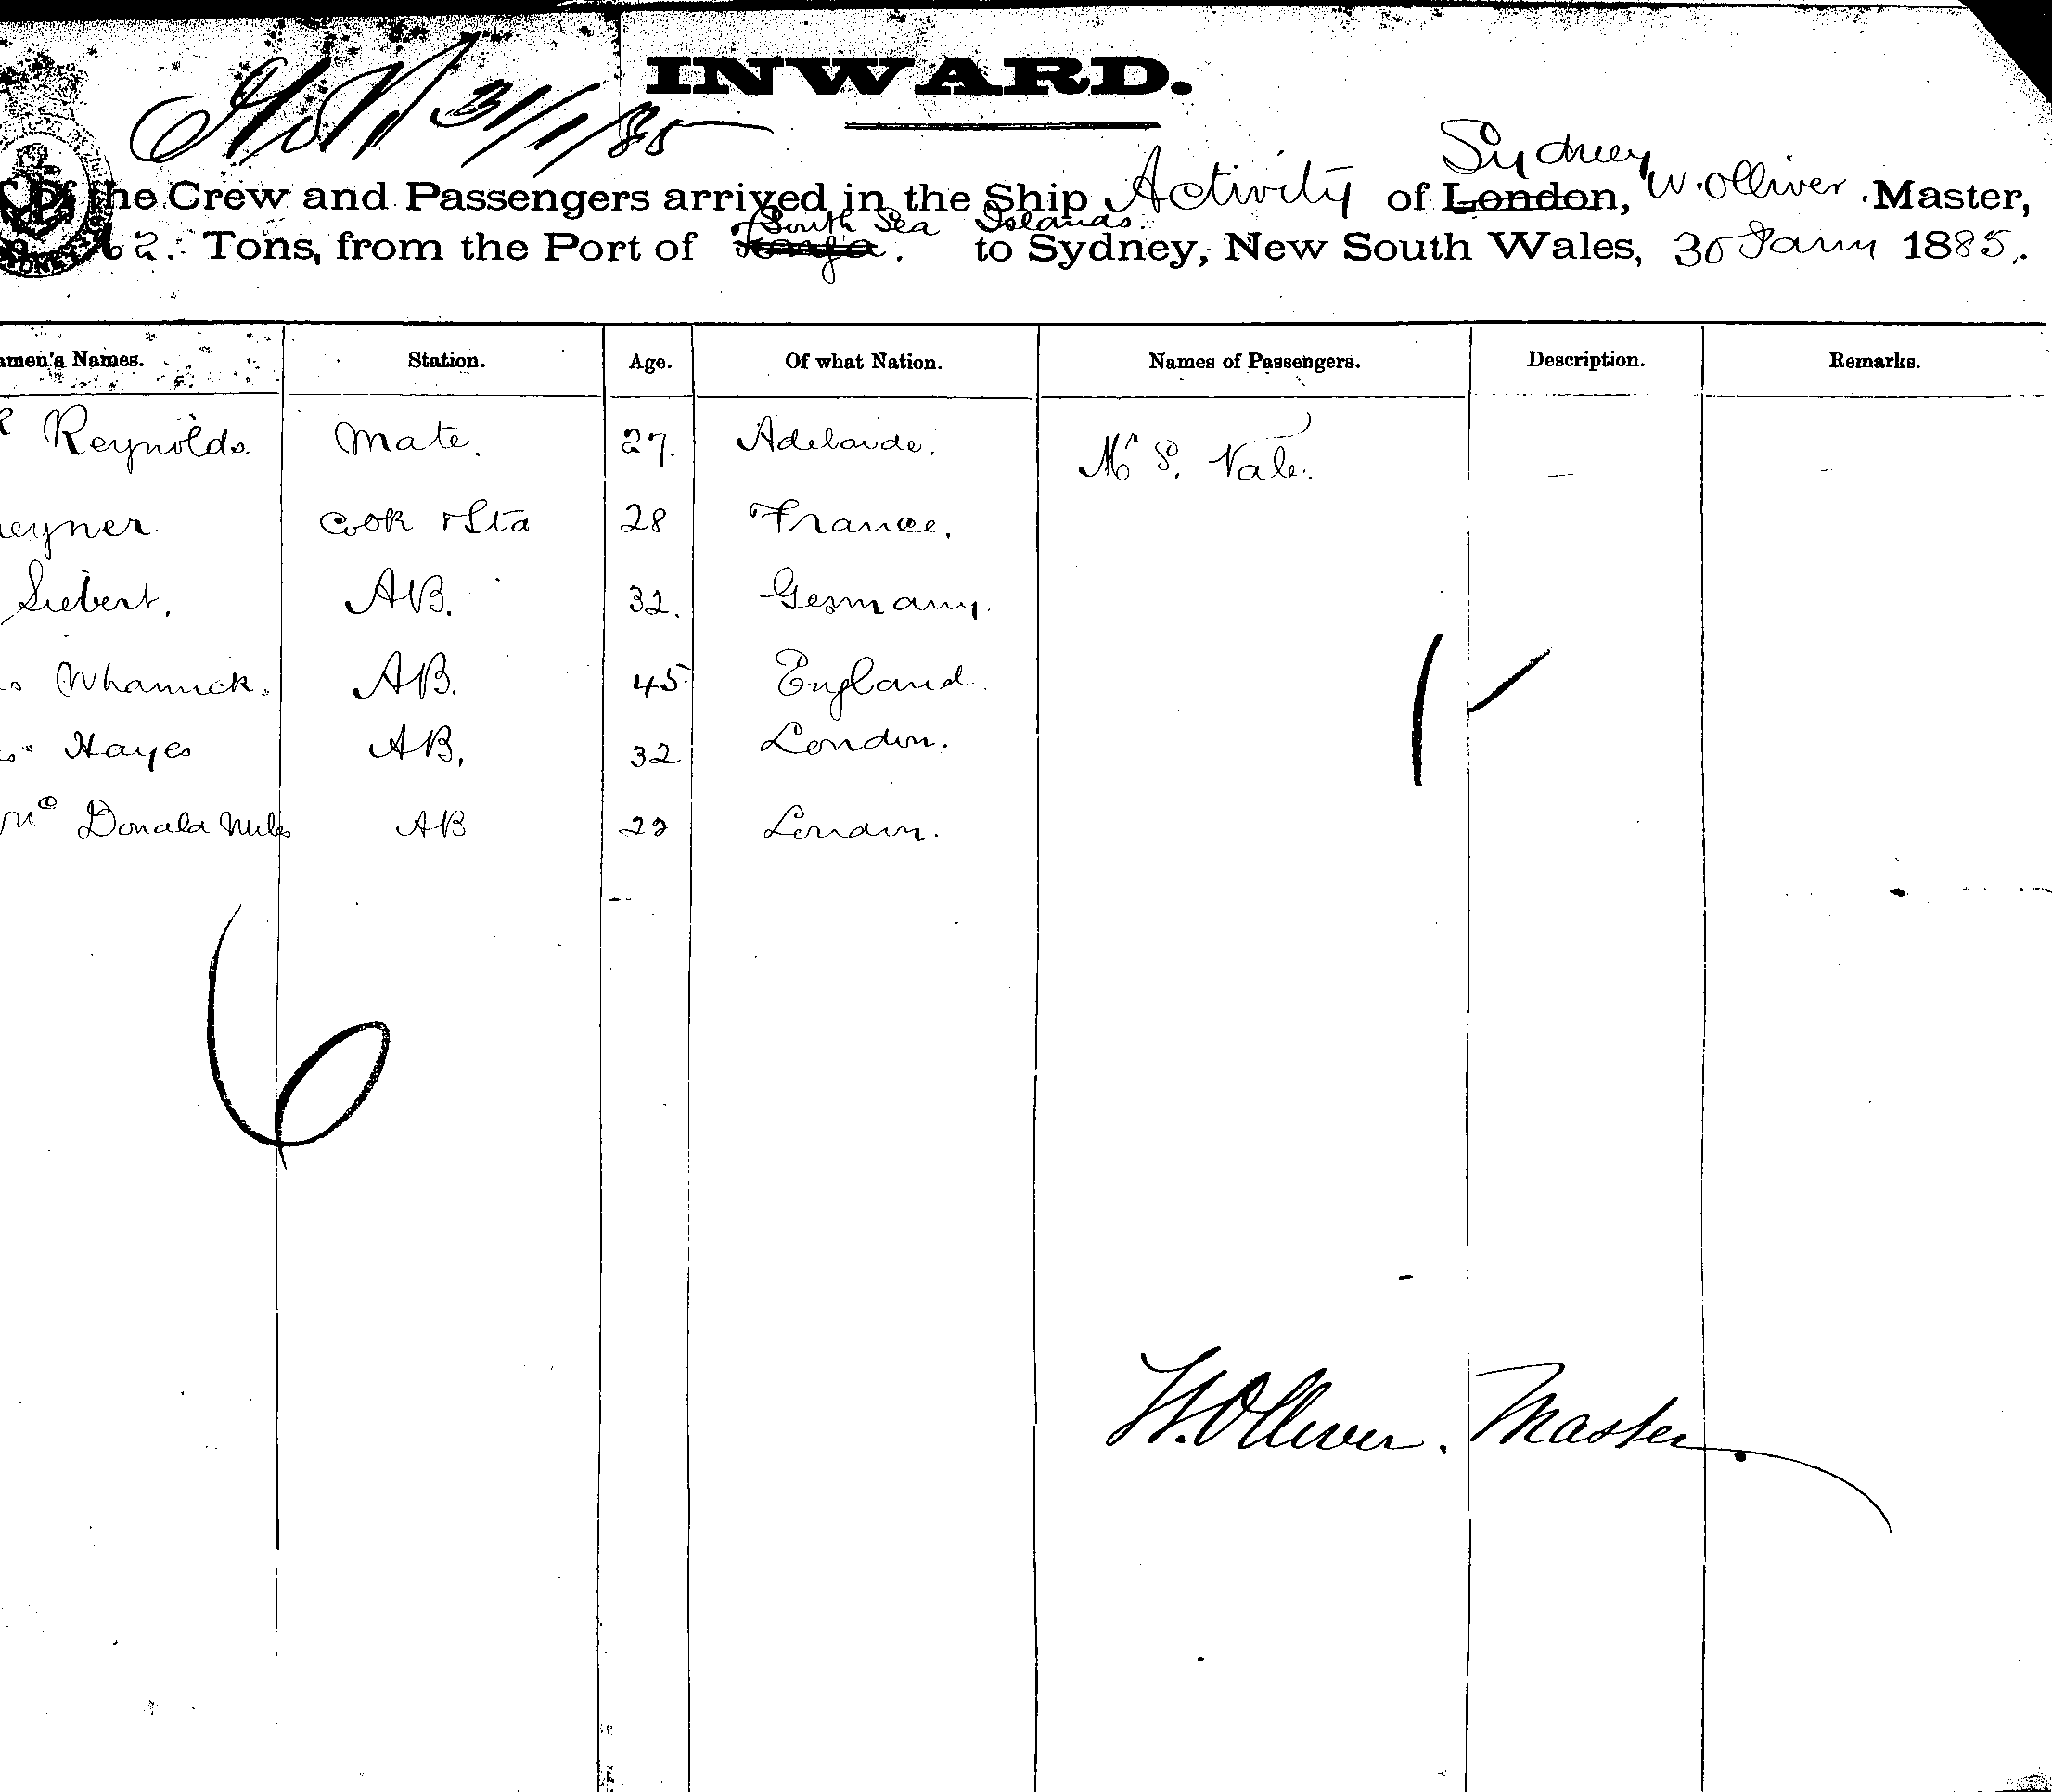 INWARD.
31/1/85
Sydney
the Crew and Passengers arrived in the Ship Activity of London, W. Olliver. Master,
South Sea Islands.
62. Tons, from the Port of Tonga. to Sydney, New South Wales, 30 Jany 1885.
amen's Names. Station. Age. Of what Nation. Names of Passengers. Description. Remarks.
R Reynolds. Mate. 27. Adelaide. Mr S. Vale. —
eyner. Cook & Sta 28 France.
Siebert. AB. 32. Germany.
s Whannick. AB. 45 England.
Hayes AB, 32 London.
Mc Donald AB 22 London.
1
6
W. Olliver. Master.